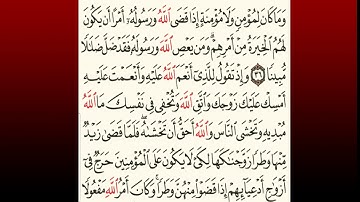 وَمَا كَانَ لِمُؤْمِنٍ وَلَا مُؤْمِنَةٍ إِذَا قَضَى اللَّهُ وَرَسُولُهُۥٓ أَمْرًا أَن يَكُونَ
لَهُمُ ٱلْخِيَرَةُ مِنْ أَمْرِهِمْ ۗ وَمَن يَعْصِ ٱللَّهَ وَرَسُولَهُۥ فَقَدْ ضَلَّ ضَلَٰلًا
مُّبِينًا ٣٦ وَإِذْ تَقُولُ لِلَّذِىٓ أَنْعَمَ ٱللَّهُ عَلَيْهِ وَأَنْعَمْتَ عَلَيْهِ
أَمْسِكْ عَلَيْكَ زَوْجَكَ وَٱتَّقِ ٱللَّهَ وَتُخْفِى فِى نَفْسِكَ مَا ٱللَّهُ
مُبْدِيهِ وَتَخْشَى ٱلنَّاسَ وَٱللَّهُ أَحَقُّ أَن تَخْشَىٰهُ ۖ فَلَمَّا قَضَىٰ زَيْدٌ
مِّنْهَا وَطَرًا زَوَّجْنَٰكَهَا لِكَىْ لَا يَكُونَ عَلَى ٱلْمُؤْمِنِينَ حَرَجٌ فِىٓ
أَزْوَٰجِ أَدْعِيَآئِهِمْ إِذَا قَضَوْا۟ مِنْهُنَّ وَطَرًا ۚ وَكَانَ أَمْرُ ٱللَّهِ مَفْعُولًا